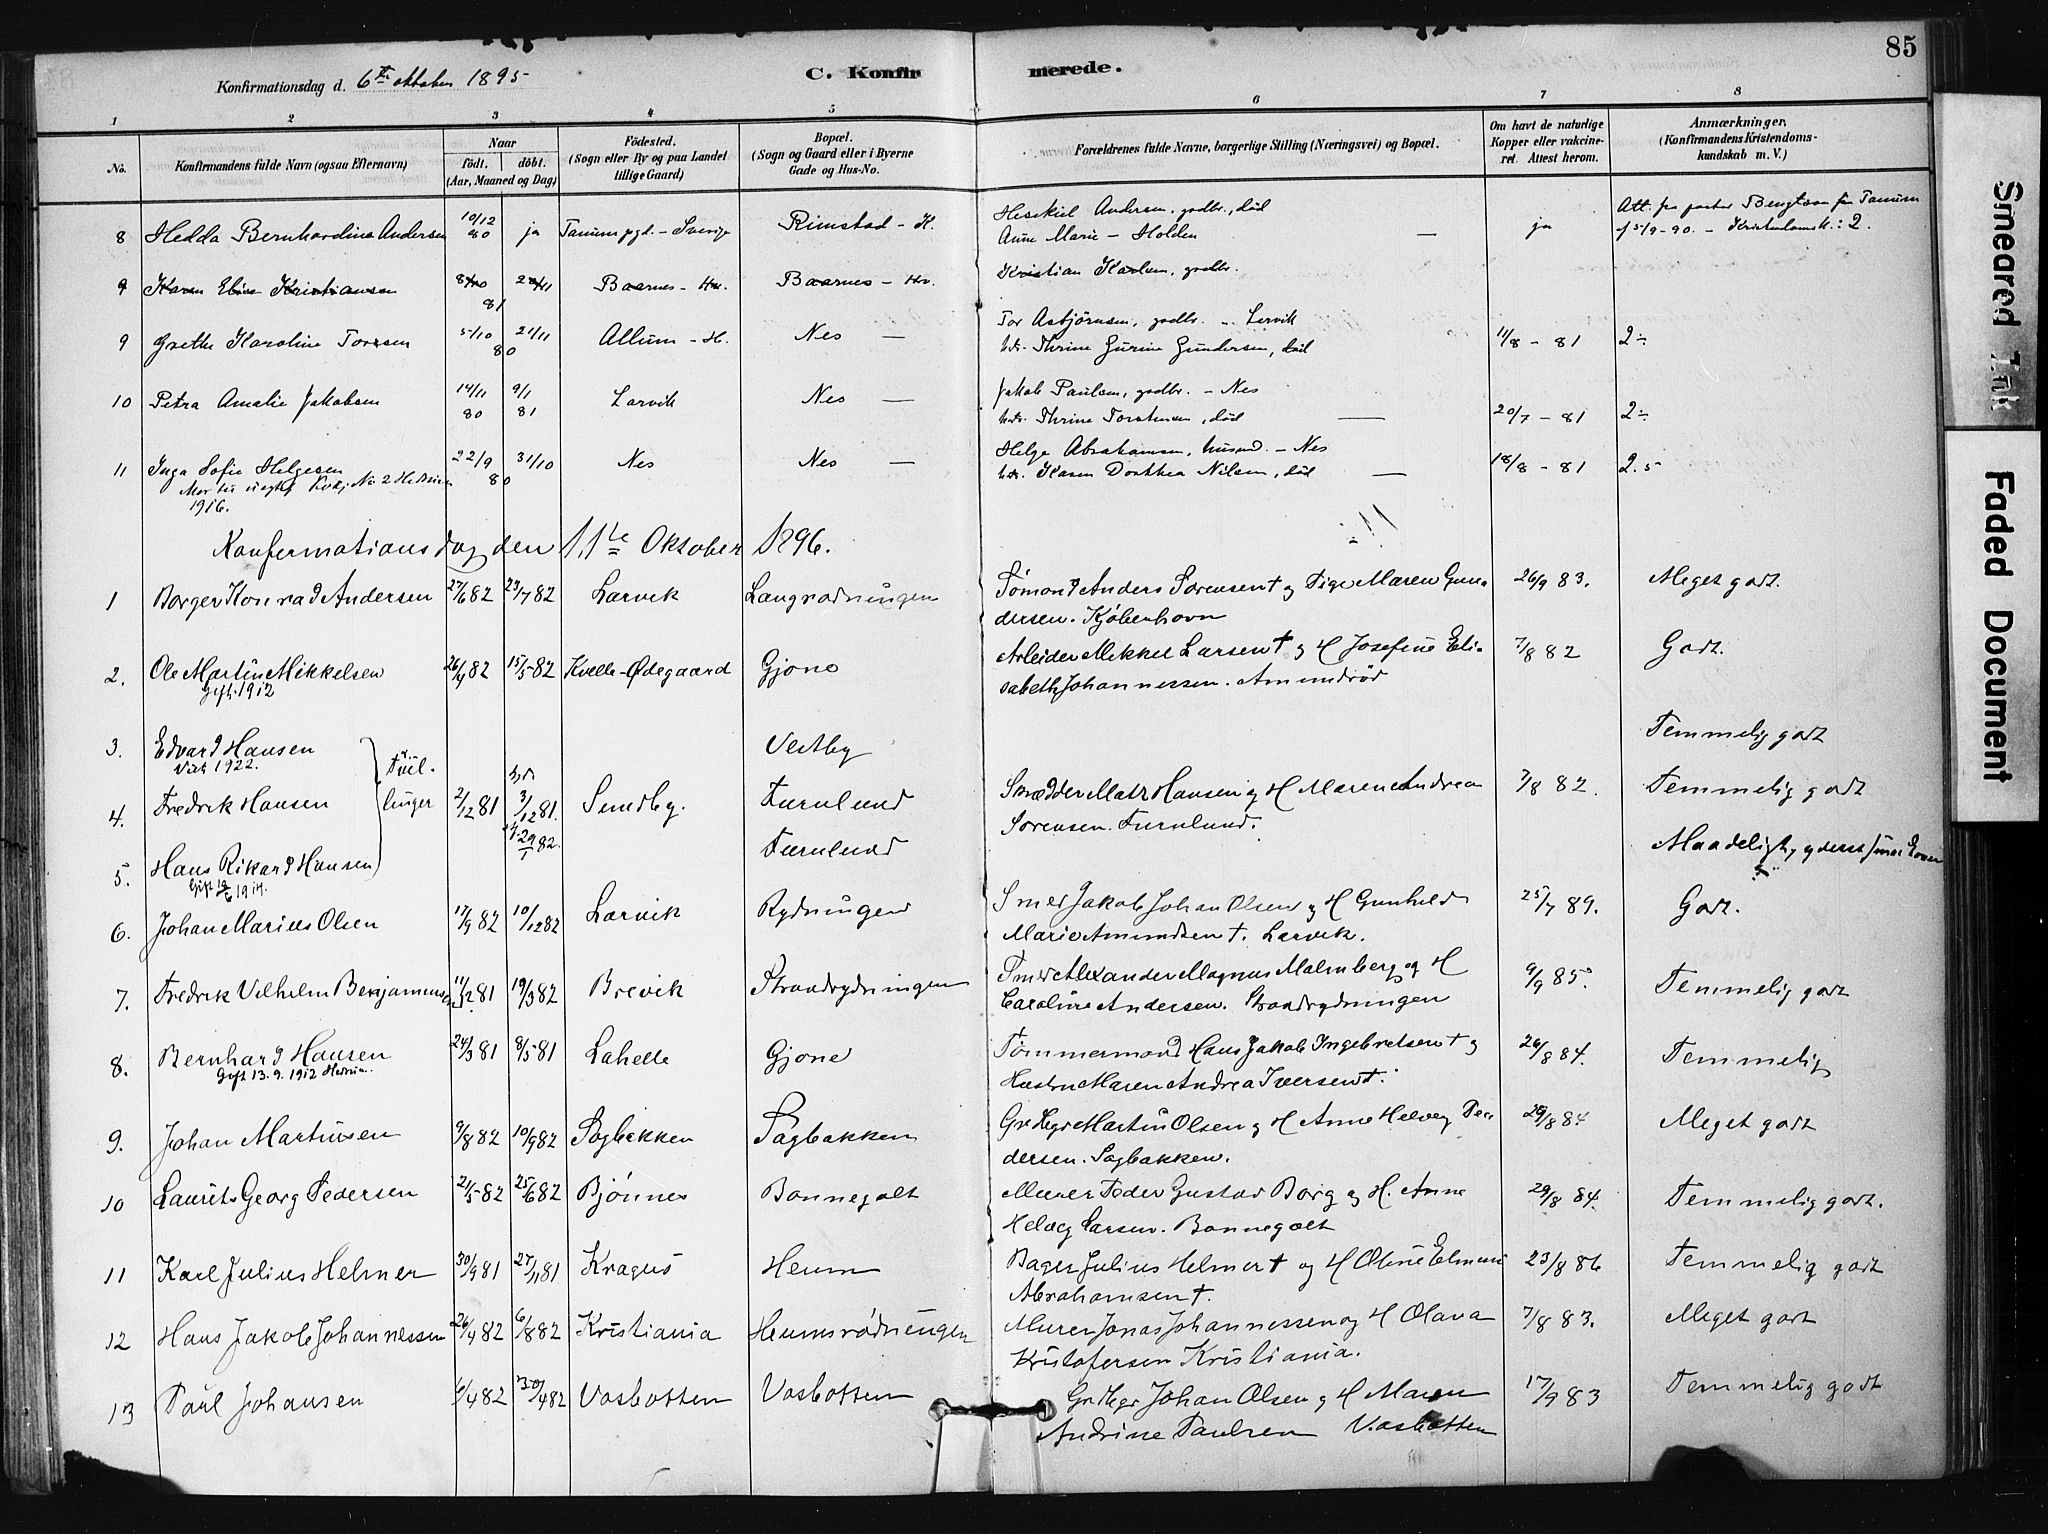 85
Konfirmationsdag d. 6te oktober 1895
C. Konfirmerede.
1 2 3 4 5 6 7 8
No. Konfirmandens fulde Navn (ogsaa Efternavn) Naar födt. döbt. (Aar, Maaned og Dag) Födested. (Sogn eller By og paa Landet tillige Gaard) Bopæl. (Sogn og Gaard eller i Byerne Gade og Hus-No. Forældrenes fulde Navne, borgerlige Stilling (Næringsvei) og Bopæl. Om havt de naturlige Kopper eller vakcineret. Attest herom. Anmærkninger. (Konfirmandens Kristendomskundskab m. V.)
8 Hedda Bernhardine Andersen 10/12 80 ja Tanum pgd. - Sverige Rimstad - H. Hesekiel Andersen, gadbr., död ja Att. fra pastor Bengtson fra Tanum
Anne Marie - Holden — f 5/9-90. - Kristendomsk.: 2.
9 Karen Elise Kristiansen 8/10 81 Baarnes - Hv. Baarnes - Hv. Kristian Karlsen, gadbr.
9 Grethe Karoline Torsen 5/10 21/11 80 Allum - H. Nes — Tor Asbjörnsen, gadbr. - Lervik
h. Thrine Gurine Gundersen, död 11/8 - 81 2÷
10 Petra Amalie Jakobsen 14/11 80 9/1 81 Larvik Nes — Jakob Paulsen, gadbr. - Nes
h. Thrine Torstensen, död — 20/7 - 81 2÷
11 Inga Sofie Helgesen 22/9 31/10 80 Nes Nes — Helge Abrahamsen, husmd. - Nes
h. Karen Dorthea Nilsen, död — 18/8 - 81 2.5
1916.
Konfermationsdag den 11te Oktober 1896.
1 Borger Konrad Andersen 27/6 82 23/7 82 Larvik Langrødningen Sømand Anders Sørensen † og Pige Maren Gun- 26/9 83. Meget godt.
dersen. Kjöbenhavn
2. Ole Martin Mikkelsen 26/4 82 15/5 82 Kvelle-Ødegaard Gjone Arbeider Mikkel Larsen † og H Josefine Eli- 7/8 82 Godt.
Gift. 1912 sabeth Johannessen. Amundröd
3. Edvard Hansen Vestby Temmelig godt
1922.
Tvil-
4. Fredrik Hansen linger 2/12 81 3/12 81. Sundby. Furulund Skrædder Matz Hansen og H Maren Andrea 7/8 82. Temmelig godt
Sörensen. Furulund.
5. Hans Rikard Hansen 29/1 82. Furulund Maadeligt, yderst smaa Evner
Gift 1914.
6. Johan Marius Olsen 17/9 82 10/12 82 Larvik Rydningen Smed Jakob Johan Olsen og H Gunhild 25/7 89. Godt.
Marie Amundsen †. Larvik.
7. Fredrik Vilhelm Benjaminsen 11/12 81 19/3 82 Brevik Strandrydningen Alexander Magnus Malmberg og H 9/9 85. Temmelig godt
Caroline Andersen. Strandrydningen
8. Bernhard Hansen 24/3 81 8/5 81 Lahelle Gjone Tømmermand Hans Jakob Ingebretsen † og 26/8 84. Temmelig
Gift 13.9.1912 Hedrum. Hustru Maren Andrea Iversen †.
9. Johan Martinsen 9/8 82 10/9 82 Sagbakken Sagbakken Martin Olsen og H Anne Helvig Pe- 29/8 84 Meget godt
dersen. Sagbakken.
10 Laurits Georg Pedersen 21/5 82 25/6 82 Bjönnes Bonnegolt Murer Peder Gustav Borg og H. Anne 29/8 84. Temmelig godt.
Helvig Larsen. Bonnegolt
11 Karl Julius Helmer 30/9 81 27/11 81 Kragerø Heum Bager Julius Helmer † og H Oline Elmine 23/8 86 Temmelig godt
Abrahamsen †.
12 Hans Jakob Johannessen 26/4 82 6/8 82 Kristiania Heumsrødningen Murer Jonas Johannessen og H Olava 7/8 83. Meget godt
Kristofersen Kristiania.
13 Paul Johansen 4/4 82 30/4 82 Vasbotten Vasbotten Johan Olsen og H Maren 17/9 83 Temmelig godt
Andrine Paulsen Vasbotten
Smeared Ink
Faded Document